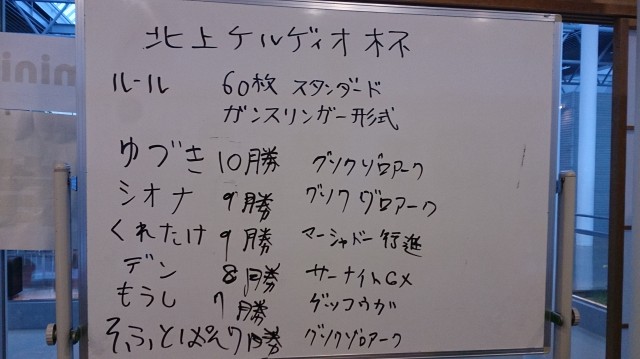 北上ケルディオ杯
ルール 60枚 スタンダード
ガンスリンガー形式
ゆづき 10勝 グソクゾロアーク
シオナ 9勝 グソクゾロアーク
くれたけ 9勝 マーシャドー行進
デン 8勝 サーナイトGX
もうし 7勝 ゲッコウガ
そふとぱん 7勝 グソクゾロアーク
mini